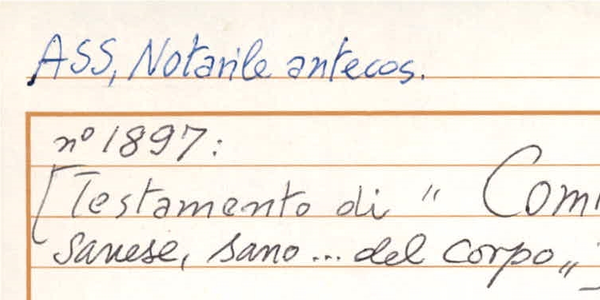 ASS, Notarile antecos.
nº 1897:
[Testamento di "
sanese, sano... del corpo„